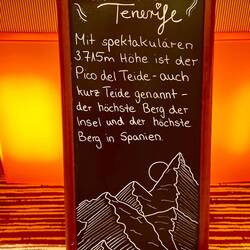 Tenerife
Mit spektakulären
3.715m Höhe ist der
Pico del Teide - auch
kurz Teide genannt -
der höchste Berg der
Insel und der höchste
Berg in Spanien.